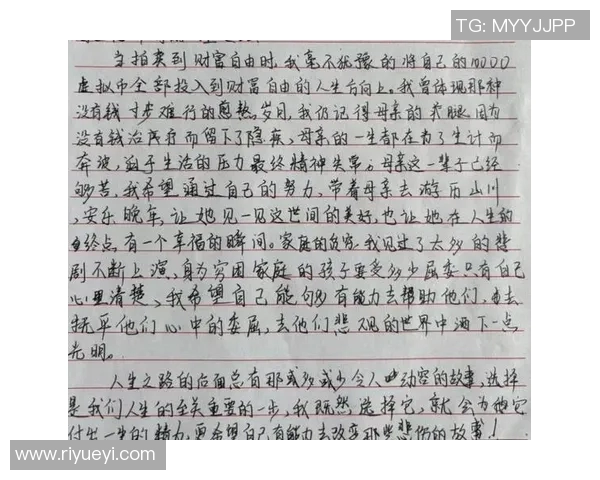 TG: MYYJJPP
当拍卖到财富自由时,我毫不犹豫的将自己的10000
虚拟币全部投入到财富自由的人生方向上。我曾体现那种
没有钱寸步难行的 岁月,我仍记得母亲的 腿,因为
没有钱治疗而留下了隐疾,母亲的一生都在为了生计而
奔波,迫于生活的压力最终精神失常。母亲这一辈子已经
够苦,我希望通过自己的努力,带着母亲去游历山川
,安乐晚年,让她见一见这世间的美好,也让她在人生的
终点有一个幸福的瞬间。家庭的贫穷,我见过了太多的悲
剧不断上演,身为穷困家庭的孩子要受多少屈委只有自己
心里清楚,我希望自己能够有能力去帮助他们,去
抚平他们心中的委屈,去他们悲观的世界中洒下一点
光明。
人生之路的后面总有那或多或少令人动容的故事,选择
是我们人生的至关重要的一步,我既然选择它,就会为他
付出一生的精力,更希望自己有能力去改变那些悲伤的故事!
www.riyueyi.com